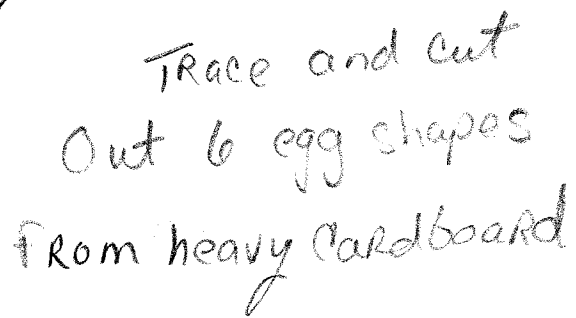 Trace and cut
Out 6 egg shapes
from heavy Cardboard